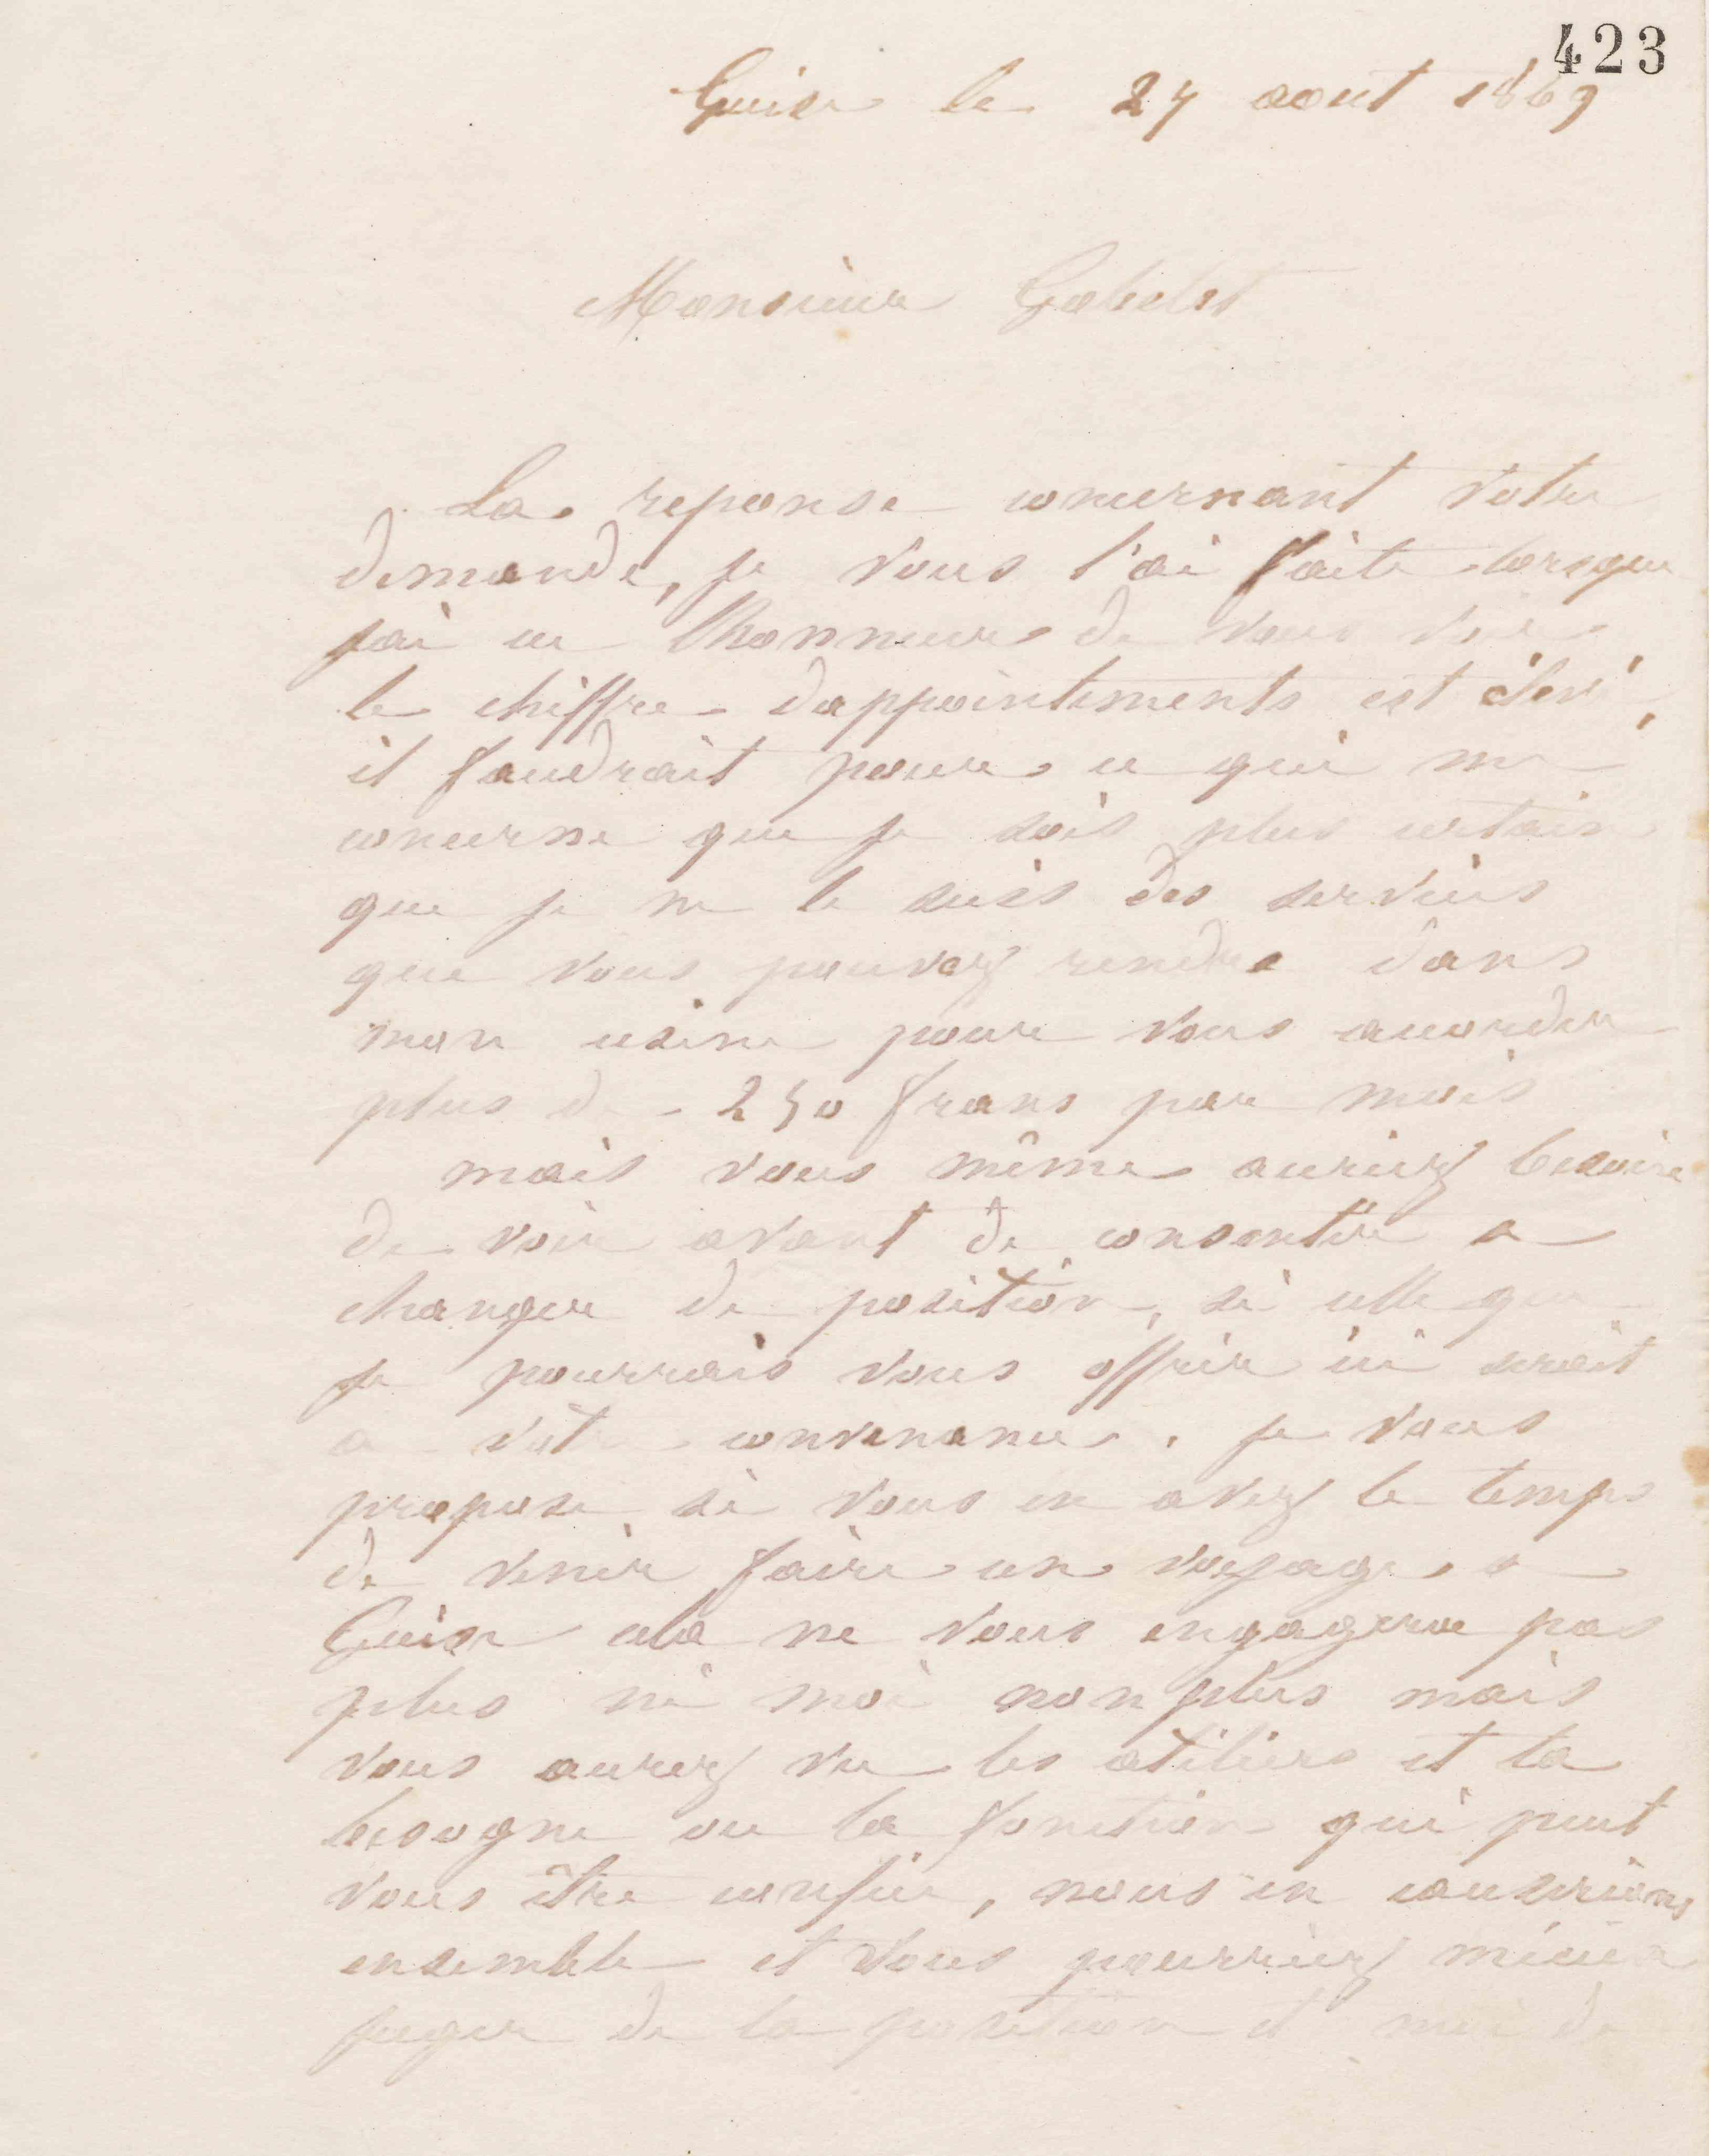 423
Guise le 27 aout 1869
Monsieur Gobelet
La reponse concernant votre
demande, je vous l'ai faite lorsque
j'ai eu l'honneur de vous voir
le chiffre d'appointements est élevé,
il faudrait pour ce qui me
concerne que je sois plus certain
que je ne le suis des services
que vous pouvez rendre dans
mon usine pour vous accorder
plus de 250 francs par mois
mais vous même auriez besoin
de voir avant de consentir a
changer de position, si celle que
je pourrais vous offrir ici serait
a votre convenance. je vous
propose si vous en avez le temps
de venir faire un voyage a
Guise cela ne vous engagera pas
plus ni moi non plus mais
vous aurez vu les ateliers et la
besogne ou la fonction qui peut
vous être confiée, nous en causerions
ensemble et vous pourriez mieux
juger de la position et moi de